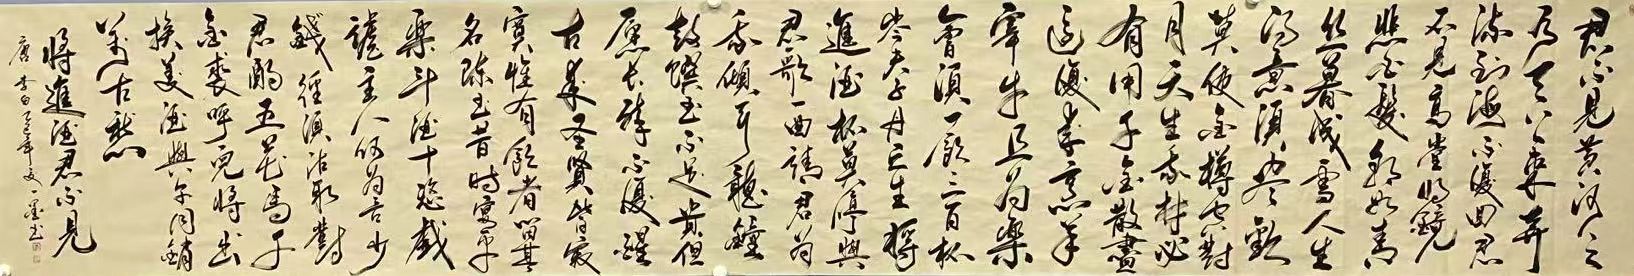 君不见黄河之
水天上来奔
流到海不復回君
不见高堂明鏡
悲白髮朝如青
丝暮成雪人生
得意須尽歡
莫使金樽空對
月天生我材必
有用千金散盡
還復来烹羊
宰牛且为樂
會須一飲三百杯
岑夫子丹丘生将
進酒杯莫停與
君歌一曲請君为
我傾耳聽鐘
鼓饌玉不足贵但
愿长醉不復醒
古来圣賢皆寂
寞惟有飲者留其
名陈王昔時宴平
樂斗酒十恣歡
謔主人何为言少
錢徑須沽取對
君酌五花馬千
金裘呼兒將出
换美酒與尔同銷
萬古愁
將進酒君不见
唐李白乙巳年夏一墨书